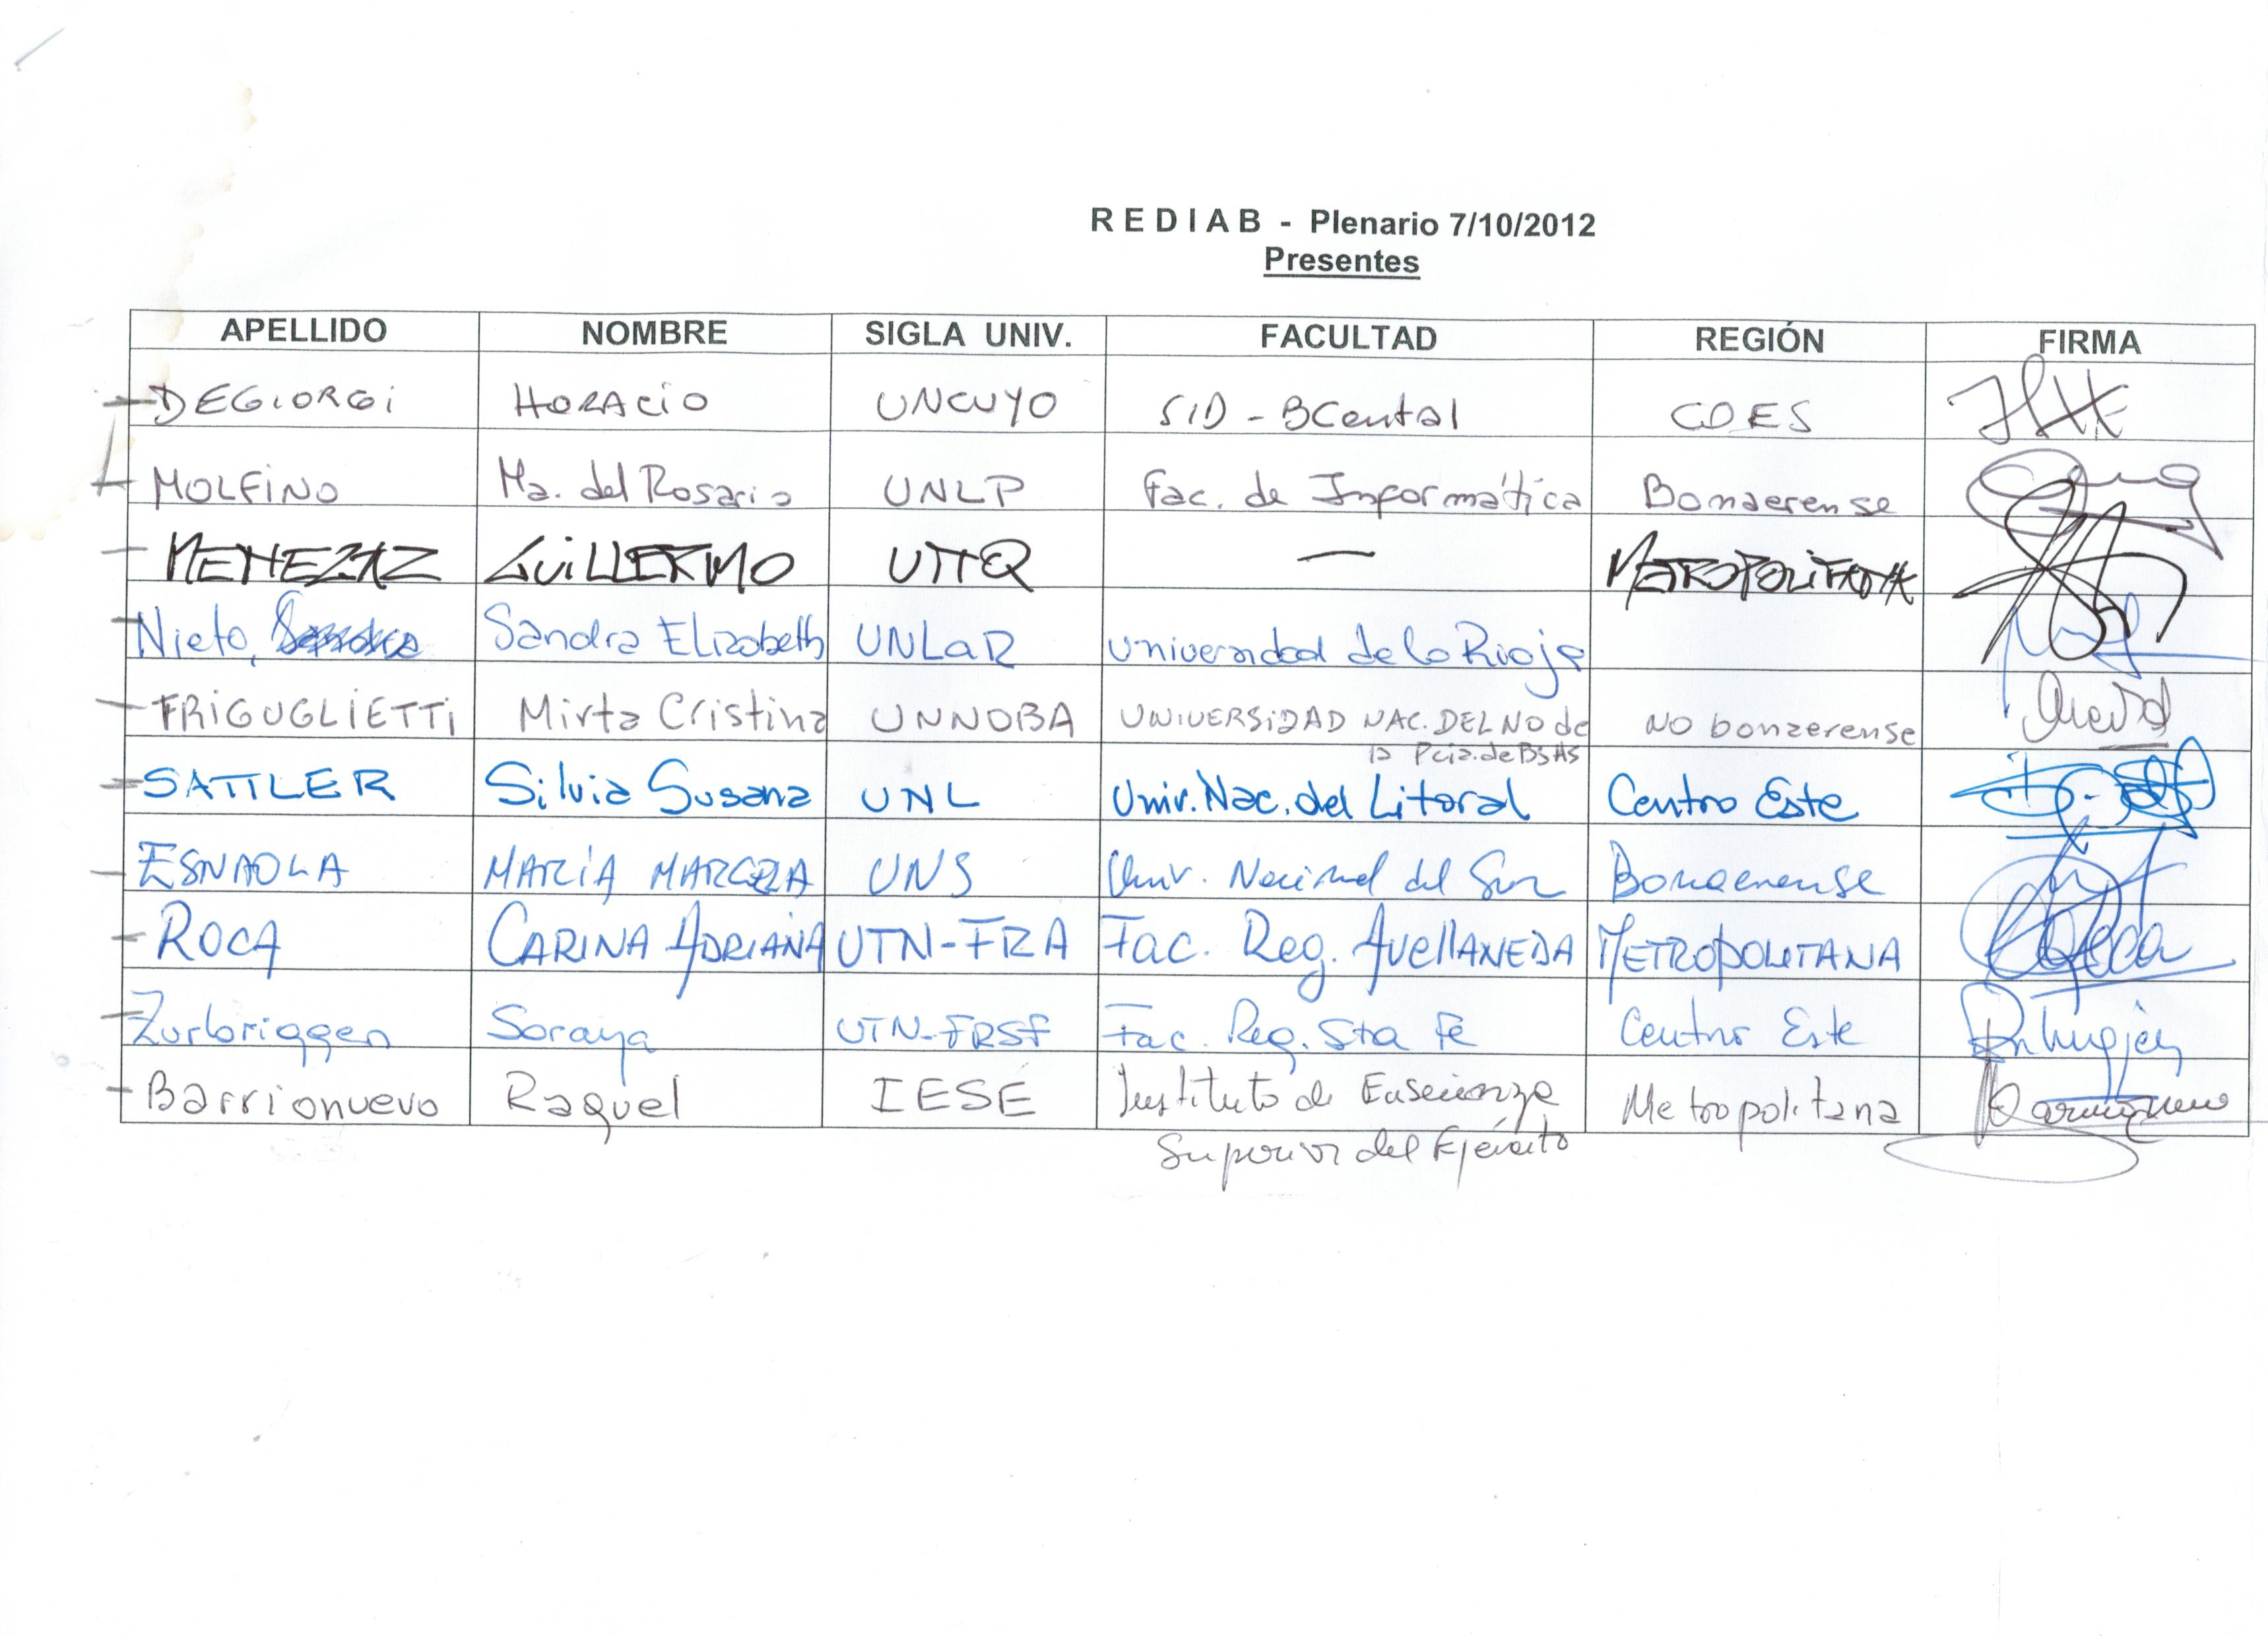 R E D I A B - Plenario 7/10/2012
Presentes
APELLIDO NOMBRE SIGLA UNIV. FACULTAD REGIÓN FIRMA
DEGIORGI HORACIO UNCUYO SID - BCental COES
MOLFINO Ma. del Rosario UNLP Fac. de Informática Bonaerense
GUILLERMO UNQ — METROPOLITANA
Nieto, Sandra Elizabeth UNLaR Universidad de la Rioja
FRIGUGLIETTI Mirta Cristina UNNOBA UNIVERSIDAD NAC. DEL NO de NO bonaerense
la Pcia. de BsAs
SATTLER Silvia Susana UNL Univ. Nac. del Litoral Centro Este
ESNAOLA MARÍA UNS Univ. Nacional del Sur Bonaerense
ROCA CARINA ADRIANA UTN-FRA Fac. Reg. AVELLANEDA METROPOLITANA
Zurbriggen Soraya UTN-FRSF Fac. Reg. Sta Fe Centro Este
Barrionuevo Raquel IESE Instituto de Enseñanza Metropolitana
Superior del Ejército